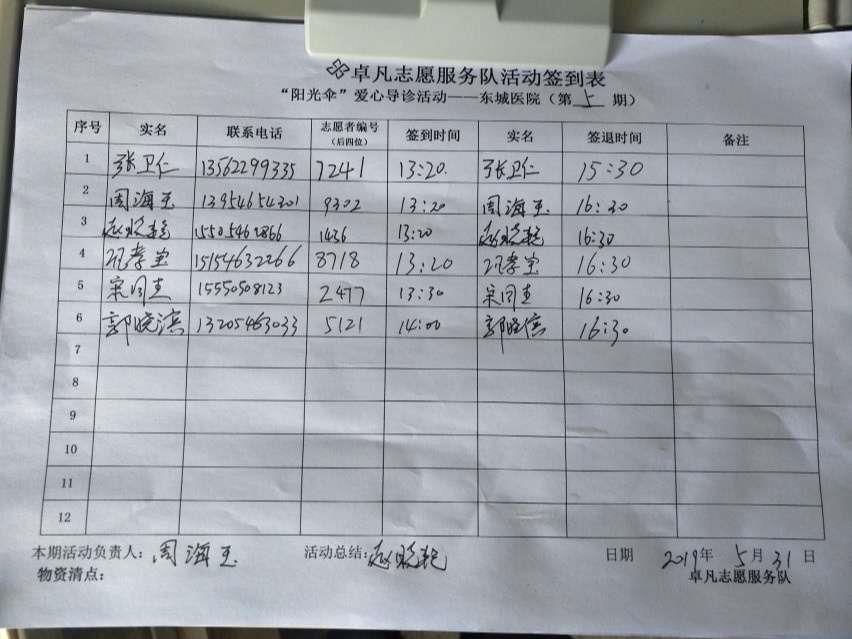 卓凡志愿服务队活动签到表
“阳光伞”爱心导诊活动——东城医院（第 5 期）
序号 实名 联系电话 志愿者编号（后四位） 签到时间 实名 签退时间 备注
1 张卫仁 13562299335 7241 13:20 张卫仁 15:30
2 周海玉 13954654301 9302 13:20 周海玉 16:30
3 赵晓艳 15505462866 1436 13:20 赵晓艳 16:30
4 15154632266 8718 13:20 16:30
5 15550508123 2477 13:30 16:30
6 郭晓滨 13205463033 5121 14:00 郭晓滨 16:30
7
8
9
10
11
12
本期活动负责人：周海玉 活动总结：赵晓艳 日期 2019年 5月 31日
物资清点： 卓凡志愿服务队